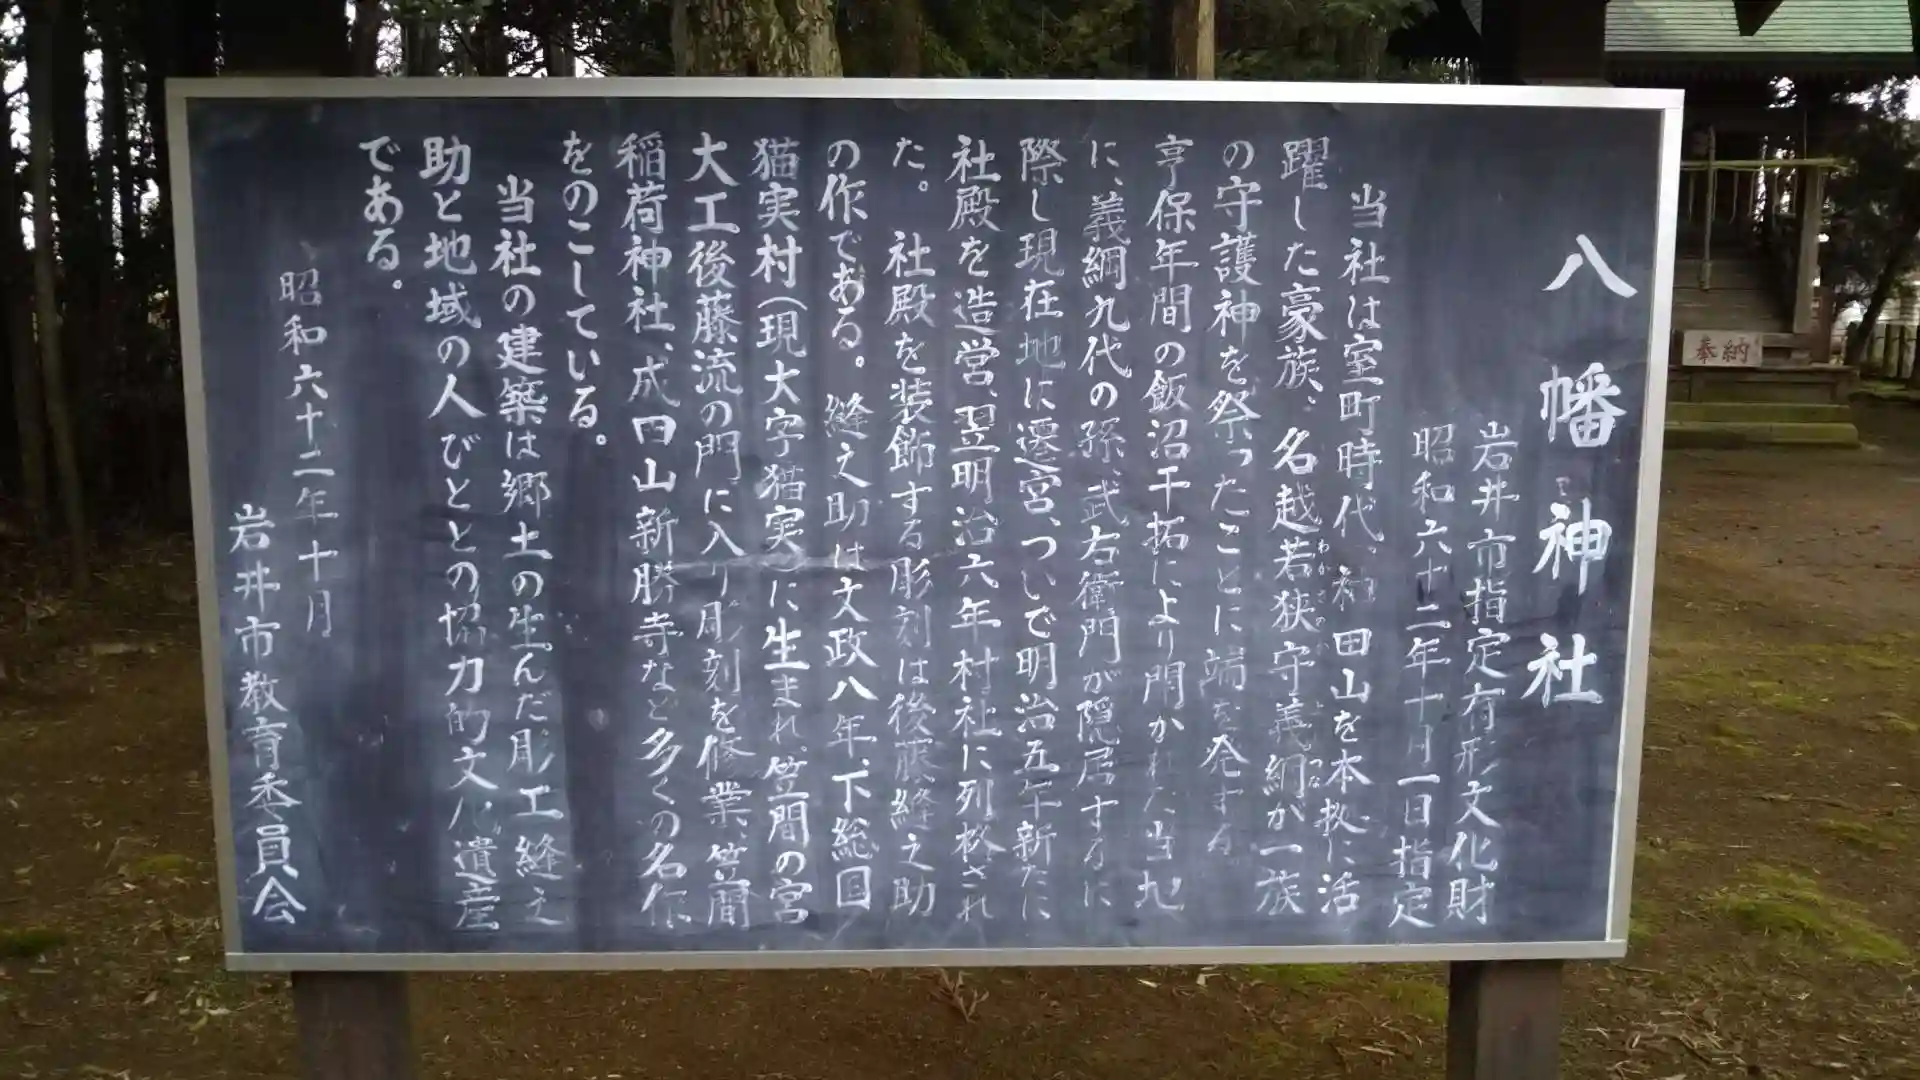 八幡神社
岩井市指定有形文化財
昭和六十二年十月一日指定
当社は室町時代、和田山を本拠に活
躍した豪族、名越若狭守義綱が一族
の守護神を祭ったことに端を発する。
享保年間の飯沼干拓により開かれた当地
に、義綱九代の孫、武右衛門が隠居するに
際し現在地に遷宮、ついで明治五年新たに
社殿を造営、翌明治六年村社に列格され
た。社殿を装飾する彫刻は後藤縫之助
の作である。縫之助は文政八年、下総国
猫実村(現大字猫実)に生まれ、笠間の宮
大工後藤流の門に入り彫刻を修業、笠間
稲荷神社、成田山新勝寺など多くの名作
をのこしている。
当社の建築は郷土の生んだ彫工縫之
助と地域の人びととの協力的文化遺産
である。
昭和六十二年十月
岩井市教育委員会
奉納